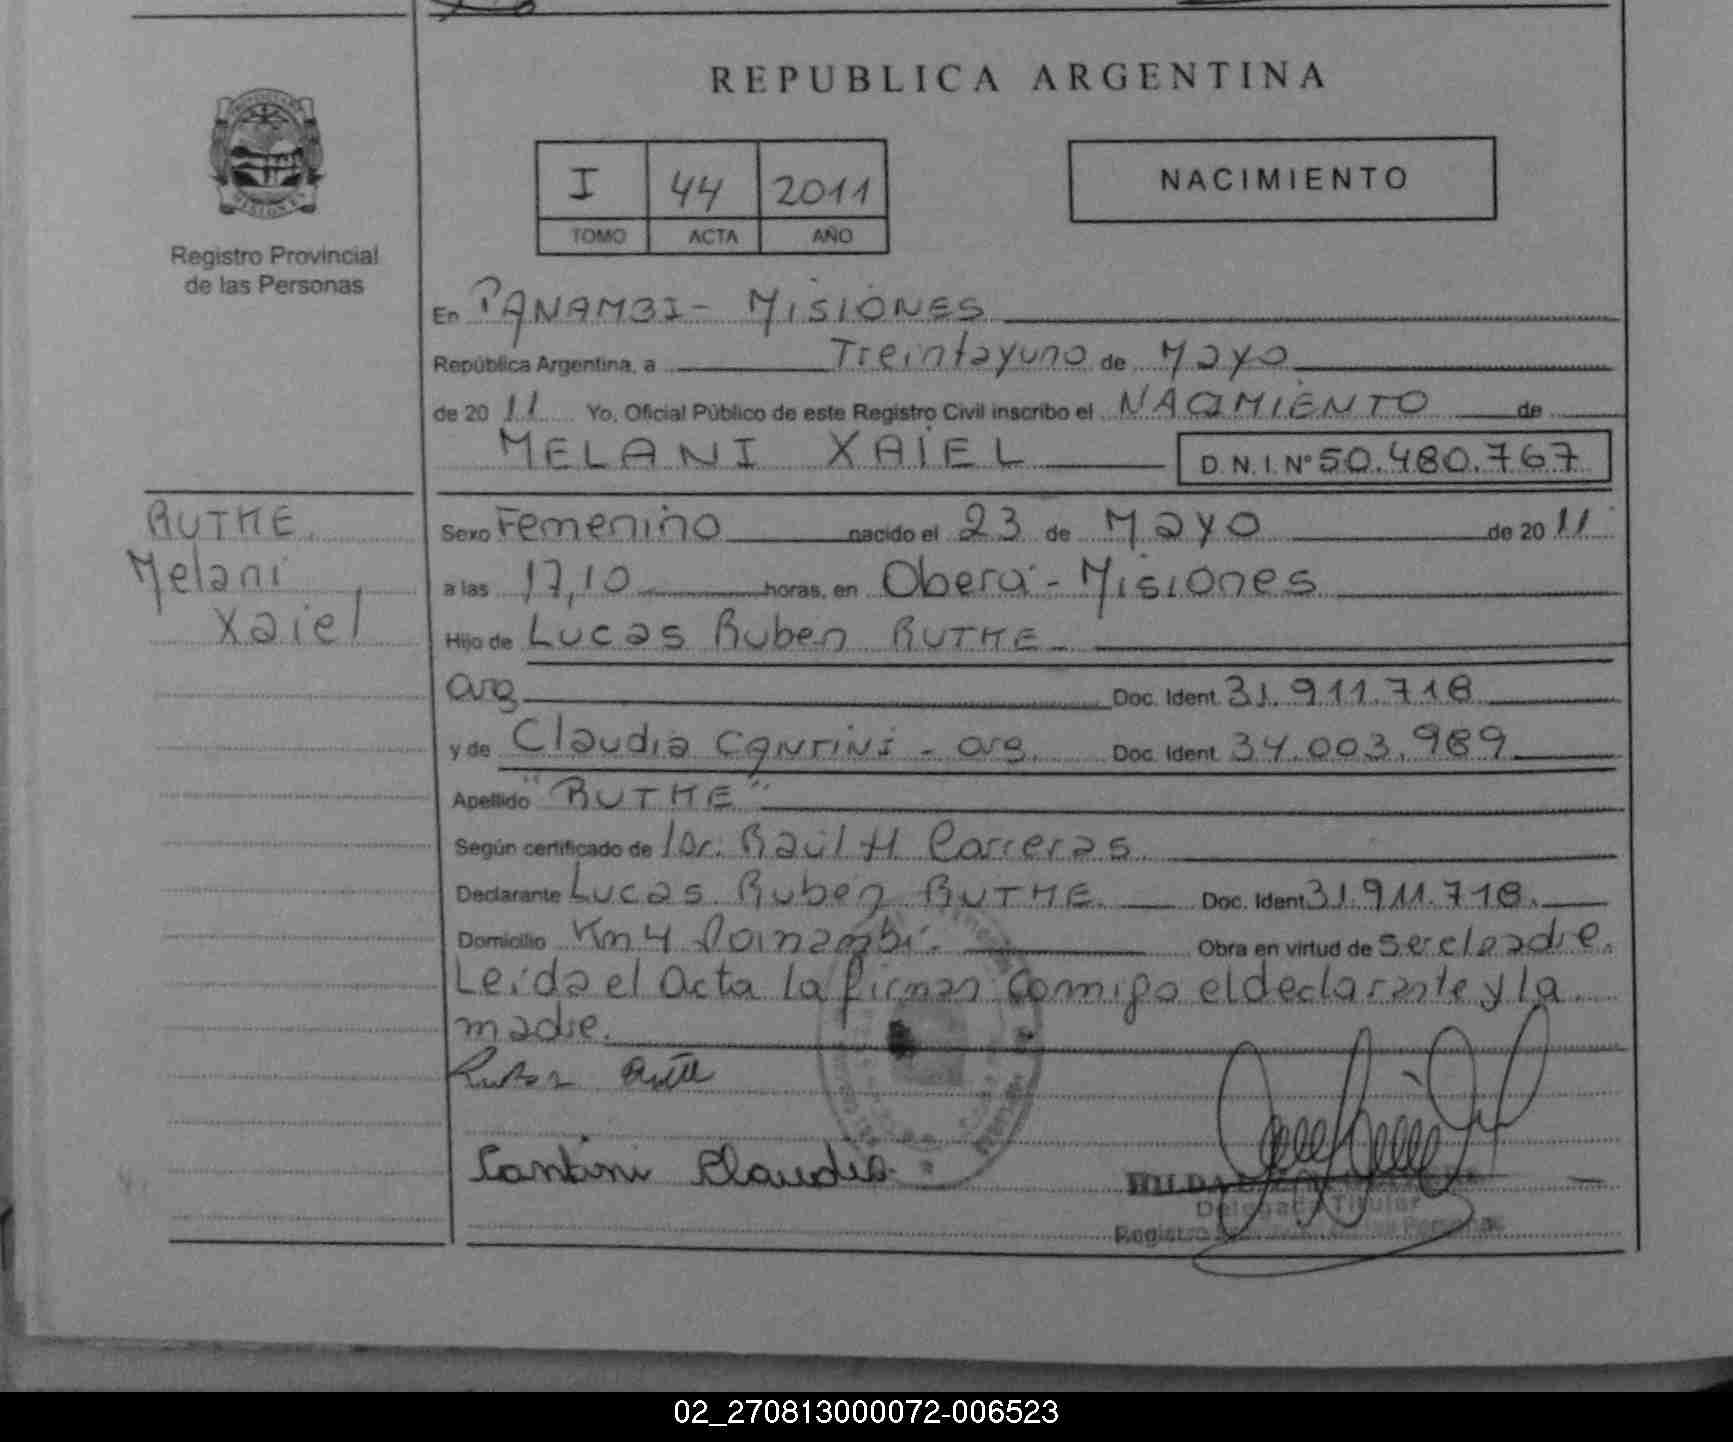 REPUBLICA ARGENTINA
I 44 2011
TOMO ACTA AÑO
NACIMIENTO
Registro Provincial
de las Personas
En PANAMBI - MISIONES
República Argentina, a Treintayuno de Mayo
de 20 11 Yo, Oficial Público de este Registro Civil inscribo el NACIMIENTO de
MELANI XAIEL D.N.I. Nº 50.480.767
RUTKE
Melani
Xaiel
Sexo Femenino nacido el 23 de Mayo de 20 11
a las 17,10 horas, en Oberá - Misiones
Hijo de Lucas Ruben RUTKE
arg Doc. Ident. 31.911.718
y de Claudia CANTINI - arg. Doc. Ident. 34.003.989
Apellido "RUTKE"
Según certificado de Dr. Raúl H Carreras
Declarante Lucas Ruben RUTKE Doc. Ident 31.911.718.
Domicilio Km 4 Panambi. Obra en virtud de ser el padre.
Leida el acta la firman conmigo el declarante y la
madre.
Cantini Claudia
HILDA
Delegada Titular
Registro Personas
02_270813000072-006523